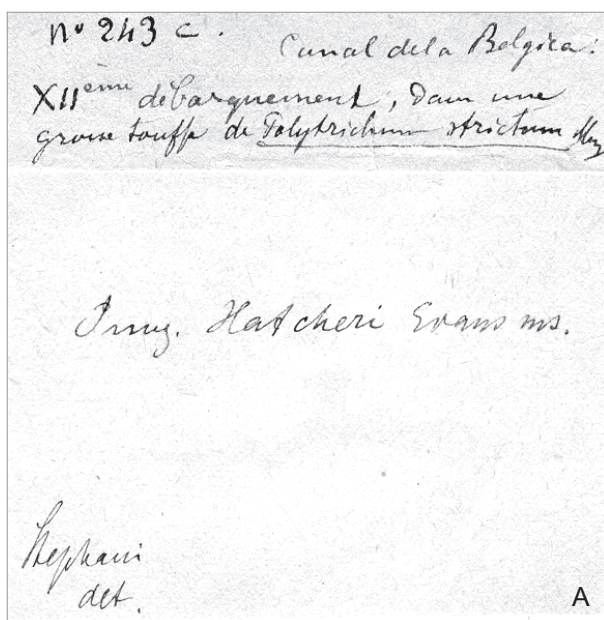 nº 243 c.
Canal de la Belgica.
XIIème débarquement, dans une
grosse touffe de Polytrichum strictum Menz
Jung. Hatcheri Evans ms.
Stephani
det.
A